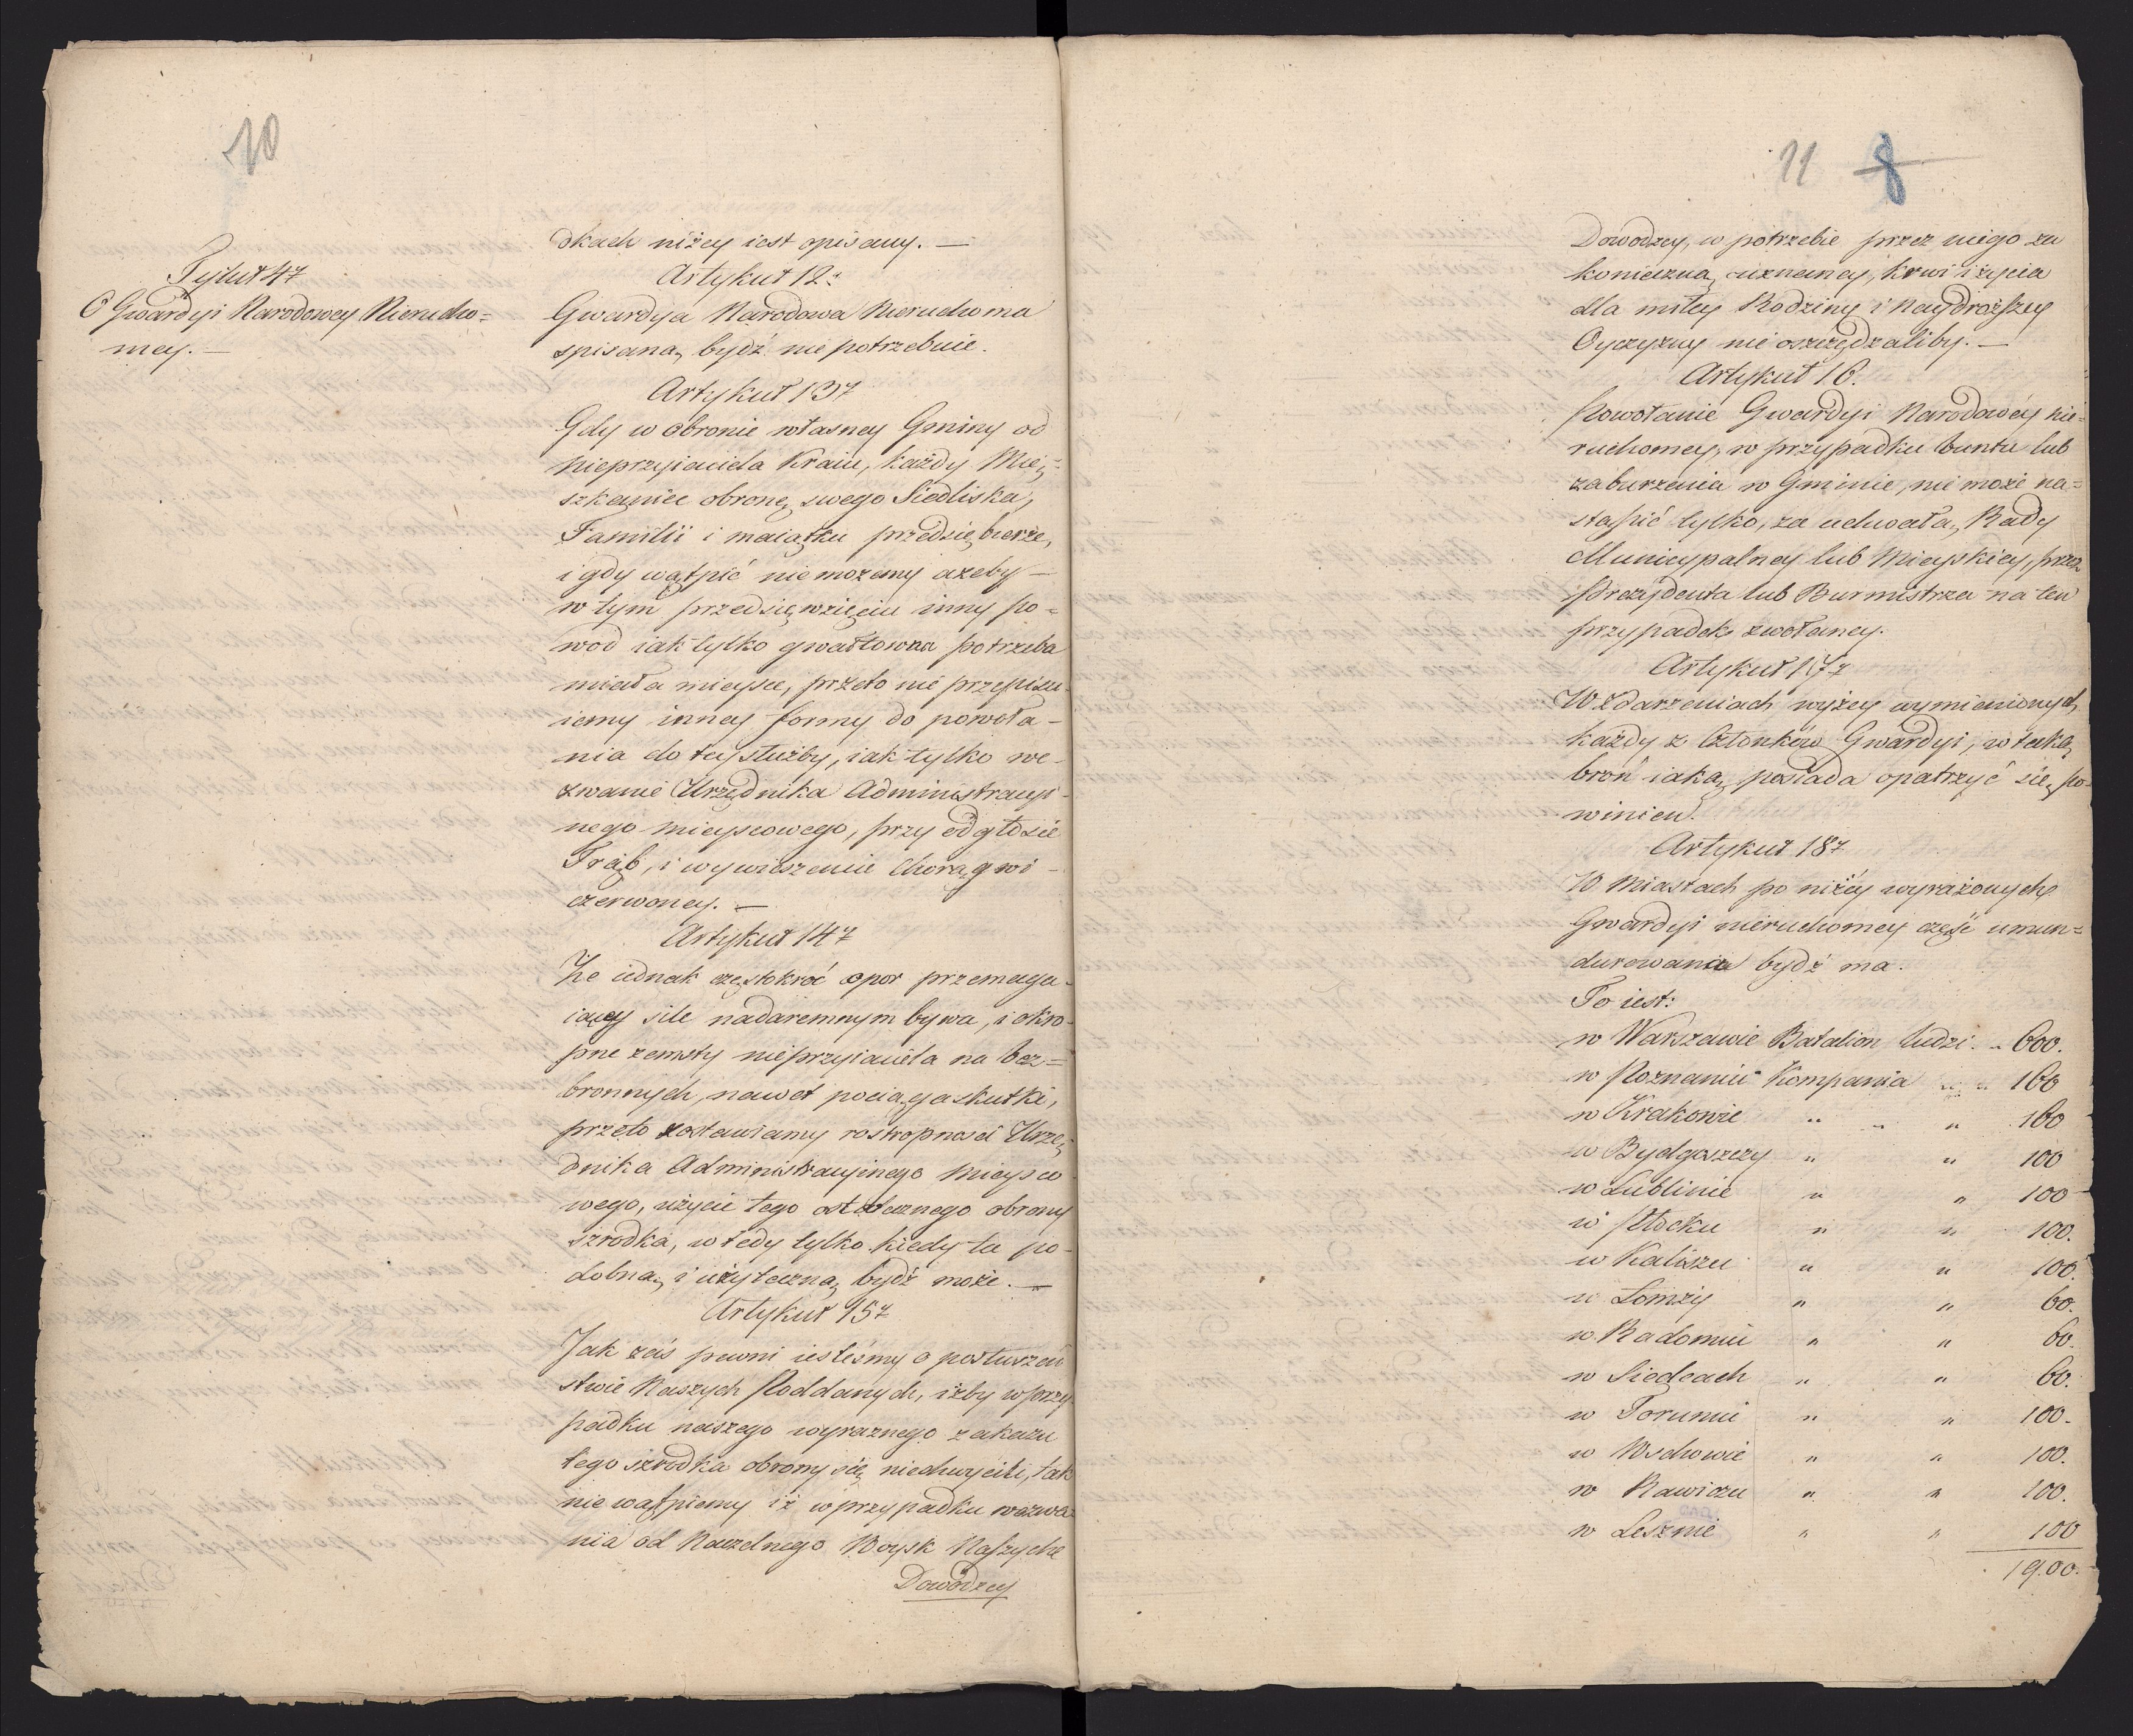 10
Tytuł 4ty
O Gwardyi Narodowey Nierucho=
mey. —
dkach niżey iest opisany. —
Artykuł 12.
Gwardya Narodowa Nieruchoma
spisaną bydź nie potrzebuie.
Artykuł 13ty
Gdy w obronie własney Gminy od
nieprzyiaciela Kraiu, każdy Mie=
szkaniec obronę swego Siedliska,
Familii i maiątku przedsiębierze,
i gdy wątpić nie możemy ażeby —
w tym przedsięwzięciu inny po=
wod iak tylko gwałtowna potrzeba
miała mieysce, przeto nie przepisu-
iemy inney formy do powoła-
nia do tey służby, iak tylko we-
zwanie Urzędnika Administracyi-
nego mieyscowego, przy odgłosie
Trąb, i wywieszenie Chorągwi -
czerwoney. —
Artykuł 14ty
Że iednak częstokroć opor przemaga-
iącey sile nadaremnym bywa, i okro-
pne zemsty nieprzyiaciela na bez=
bronnych, nawet pociąga skutki,
przeto zostawiamy rostropności Urzę=
dnika Administracyinego mieysco
wego, użycie tego ostatecznego obrony
szrodka, wtedy tylko kiedy ta po-
dobną i użyteczną bydź może. —
Artykuł 15ty
Jak zaś pewni iesteśmy o posłuszeń
stwie Naszych Poddanych, iżby w przy
padku naszego wyraznego zakazu
tego szrodka obrony się niechwycili, tak
nie wątpiemy iż w przypadku wezwa-
nia od Naczelnego Woysk Naszych
Dowódzcy
11 8
Dowodzcy, w potrzebie przez niego za
konieczną uznaney, krwi i życia
dla miłey Rodziny i Naydroższey
Oyczyzny nie oszczędzaliby. —
Artykuł 16.
Powołanie Gwardyi Narodowéy nie-
ruchomey, w przypadku buntu lub
zaburzenia w Gminie, nie może na=
stąpić tylko, za uchwałą Rady
Municypalney lub Mieyskiey, przez
Prezydenta lub Burmistrza na ten
przypadek zwołaney.
Artykuł 17ty
W zdarzeniach wyżey wymienionych,
każdy z Członków Gwardyi, w taką
broń iaką posiada opatrzyć się po-
winien.
Artykuł 18ty
W Miastach po niżéy wyrażonych
Gwardyi nieruchomey część umun=
durowana bydź ma.
To iest:
w Warszawie Batalion ludzi .. 600.
w Poznaniu Kompania " " 160
w Krakowie " " " 160
w Bydgoszczy " " 100
w Lublinie " " 100
w Płocku " " 100.
w Kaliszu " " 100.
w Łomży " " 60.
w Radomiu " " 60.
w Siedlcach " " 60.
w Toruniu " " 100.
w Wschowie " " 100.
w Rawiczu " " 100.
w Lesznie " " 100
1900.